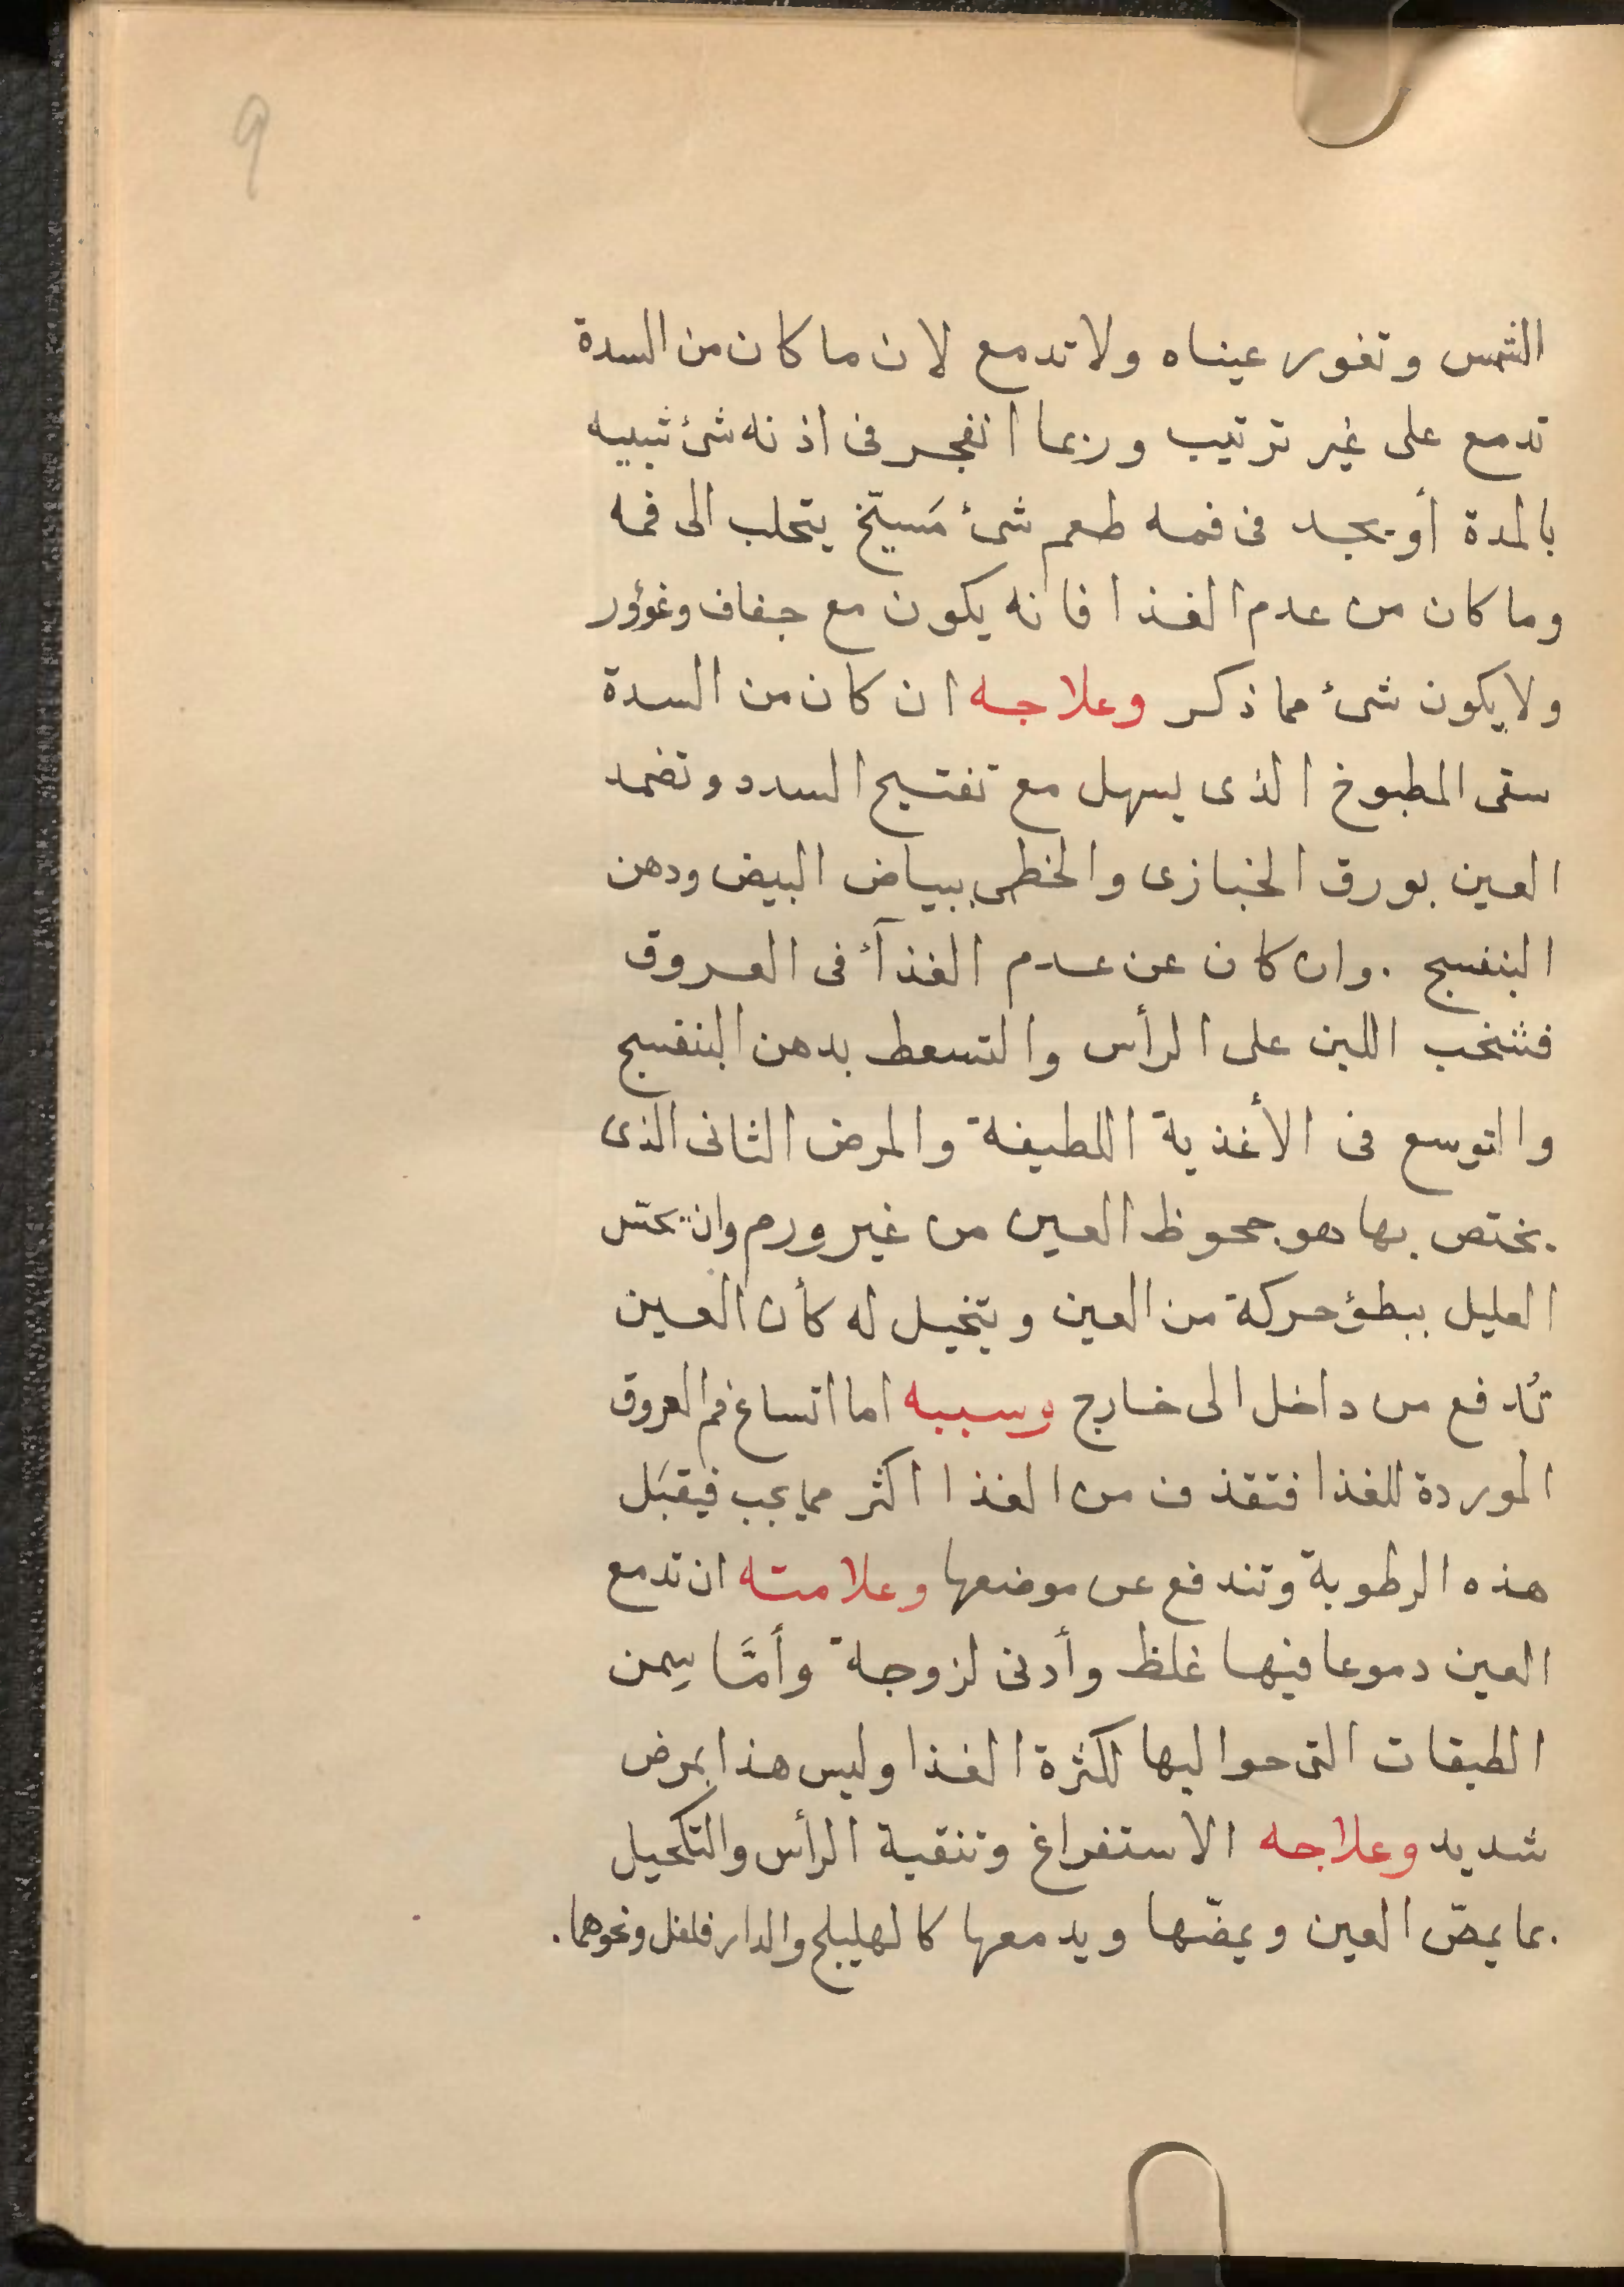 9
الشمس وتغور عيناه ولا تدمع لان ما كان من السدة
تدمع على غير ترتيب وربما انفجر فى اذنه شئ شبيه
بالمدة أو يجد فى فمه طعم شئ مَسيّخ يتحلب الى فمه
وما كان من عدم الغذا فانه يكون مع جفاف وغؤور
ولا يكون شئ مما ذكر وعلاجه ان كان من السدة
سقى المطبوخ الذى يسهل مع تفتيح السدد وتضمد
العين بورق الخبازى والخطمى ببياض البيض ودهن
البنفسج . وان كان عن عدم الغذآئ فى العروق
اللبن على الرأس والتسعط بدهن البنفسج
والتوسع فى الأغذية اللطيفة والمرض الثانى الذى
يختص بها هو جحوظ العين من غير ورم وان يحسّ
العليل ببطؤ حركة من العين ويتخيل له كأن العين
تُدفع من داخل الى خارج وسببه اما اتساع فم العروق
الموردة للغذا فتقذف من الغذا اكثر مما يجب فيقبَل
هذه الرطوبة وتندفع عن موضعها وعلامته ان تدمع
العين دموعا فيها غلظ وأدنى لزوجة وأمَّا سِمن
الطبقات التى حواليها لكثرة الغذا وليس هذا بمرض
شديد وعلاجه الاستفراغ وتنقية الرأس والتكحيل
بما يمصّ العين ويمضّها ويدمعها كالهليلج والدارفلفل ونحوهما.